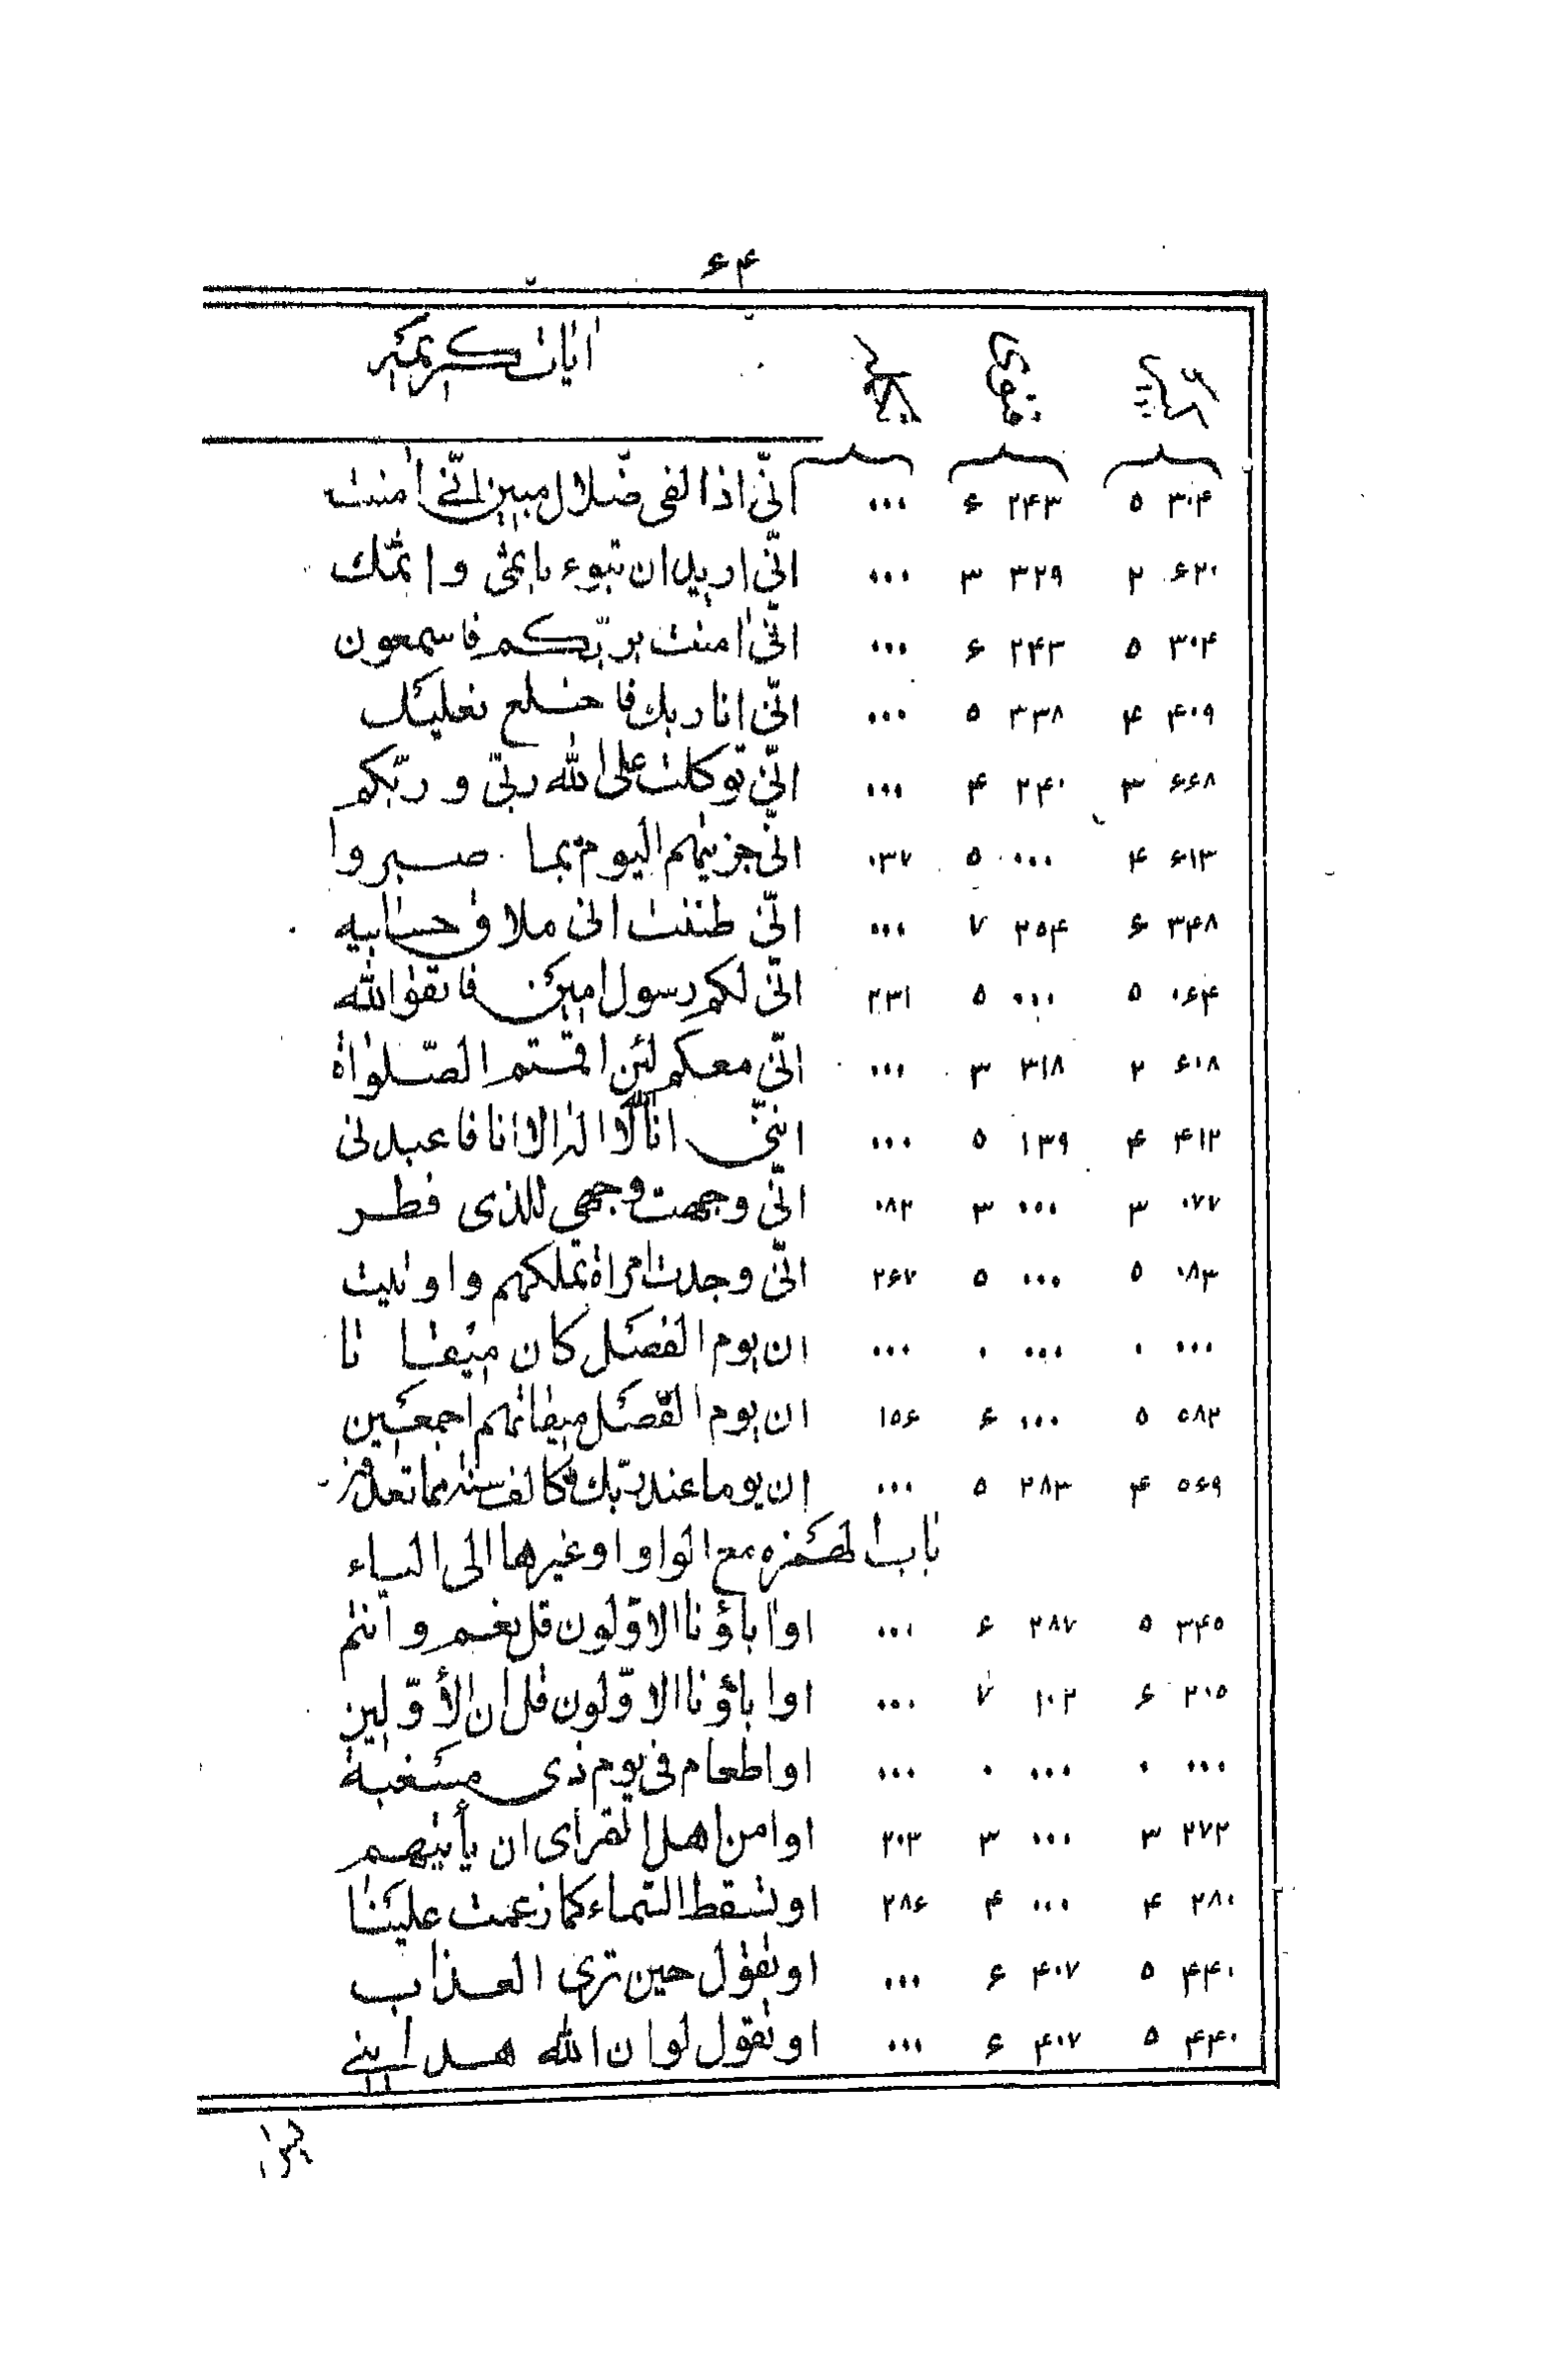 ۶۴
اٰیات کریمه
۳۰۴ ۵ ۲۴۳ ۶ ۰۰۰ انّی اذا لفی ضّلال مبین انّی اٰمنت
۶۲۰ ۲ ۳۲۹ ۳ ۰۰۰ انّی ارید ان تبوء باثمی و اثمک
۳۰۴ ۵ ۲۴۳ ۶ ۰۰۰ انّی اٰمنت بربّکم فاسمعون
۴۰۹ ۴ ۳۳۸ ۵ ۰۰۰ انّی انا ربك فاخلع نعلیك
۶۶۸ ۳ ۲۴۰ ۴ ۰۰۰ انّی توکلت علی الله ربّی و ربّکم
۶۱۳ ۴ ۰۰۰ ۵ ۰۳۷ انّی جزیتهم الیوم بما صبروا
۳۴۸ ۶ ۲۵۴ ۷ ۰۰۰ انّی ظننت انی ملاق حسابیه
۰۶۴ ۵ ۰۰۰ ۵ ۲۳۱ انّی لکم رسول امین فاتقوا الله
۶۰۸ ۲ ۳۱۸ ۳ ۰۰۰ انّی معکم لئن اقمتم الصّلواة
۴۱۲ ۴ ۱۳۹ ۵ ۰۰۰ اننّی انا الله لا اله الا انا فاعبدنی
۰۷۷ ۳ ۰۰۰ ۳ ۰۸۲ انّی وجهت وجهی للذی فطر
۰۸۳ ۵ ۰۰۰ ۵ ۲۶۷ انّی وجدت امراة تملکهم و اوتیت
۰۰۰ ۰ ۰۰۰ ۰ ۰۰۰ ان یوم الفصل کان میقاتا
۵۸۲ ۵ ۰۰۰ ۶ ۱۵۶ ان یوم الفصل میقاتهم اجمعین
۵۶۹ ۴ ۲۸۳ ۵ ۰۰۰ ان یوما عند ربّك کالف سنة مما تعدون
باب الهمزه مع الواو او غیرها الی الیاء
۳۴۵ ۵ ۲۸۷ ۶ ۰۰۰ اواٰباؤنا الاوّلون قل نعم و انتم
۲۰۵ ۶ ۱۰۲ ۷ ۰۰۰ اواباؤنا الاوّلون قل ان الأوّلین
۰۰۰ ۰ ۰۰۰ ۰ ۰۰۰ او اطعام فی یوم ذی مسغبة
۲۷۲ ۳ ۰۰۰ ۳ ۲۰۳ اوامن اهل القرای ان یأتیهم
۲۸۰ ۴ ۰۰۰ ۴ ۲۸۶ او تسقط السّماء کما زعمت علینا
۴۴۰ ۵ ۴۰۷ ۶ ۰۰۰ او تقول حین تری العذاب
۴۴۰ ۵ ۴۰۷ ۶ ۰۰۰ او تقول لو ان الله هدانی